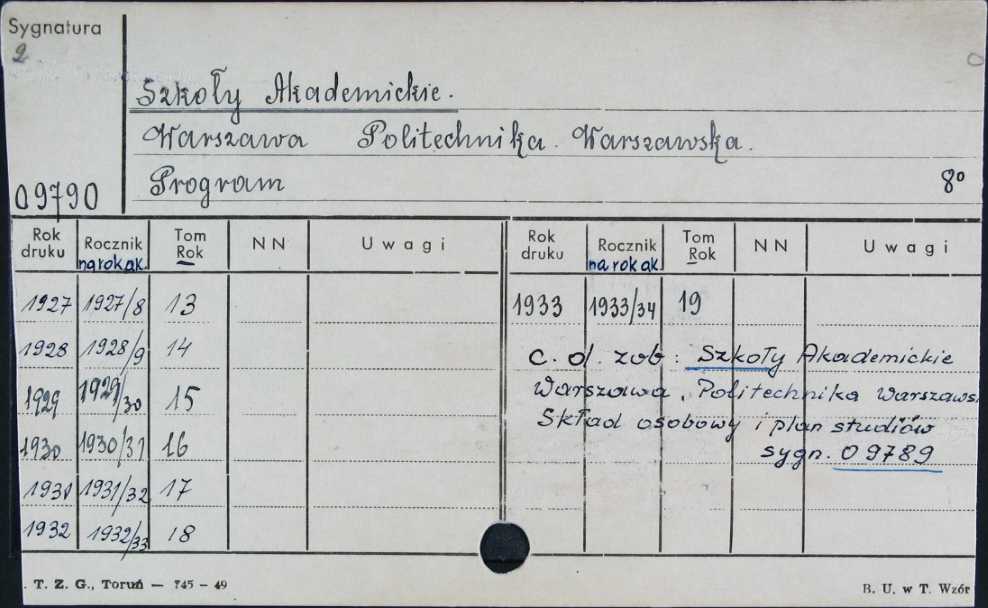 Sygnatura
2
Szkoły Akademickie.
Warszawa Politechnika Warszawska.
09790 Program 8°
Rok druku Rocznik na rok ak. Tom Rok NN Uwagi Rok druku Rocznik na rok ak. Tom Rok NN Uwagi
1927 1927/8 13 1933 1933/34 19
1928 1928/9 14 c. d. zob: Szkoły Akademickie
1929 1929/30 15 Warszawa, Politechnika Warszaws
Skład osobowy i plan studiów
1930 1930/31 16 sygn. 09789
1931 1931/32 17
1932 1932/33 18
. T. Z. G., Toruń — 745 – 49 B. U. w T. Wzór